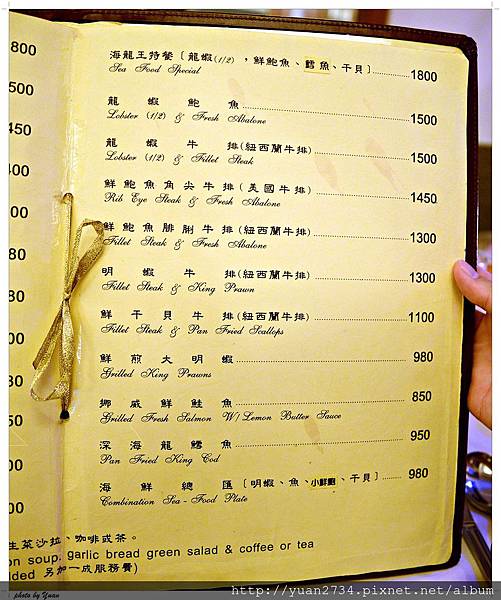 海龍王特餐〔龍蝦(1/2)，鮮鮑魚、鱈魚、干貝〕 1800
Sea Food Special
龍蝦鮑魚 1500
Lobster (1/2) & Fresh Abalone
龍蝦牛排(紐西蘭牛排) 1500
Lobster (1/2) & Fillet Steak
鮮鮑魚角尖牛排(美國牛排) 1450
Rib Eye Steak & Fresh Abalone
鮮鮑魚腓剛牛排(紐西蘭牛排) 1300
Fillet Steak & Fresh Abalone
明蝦牛排(紐西蘭牛排) 1300
Fillet Steak & King Prawn
鮮干貝牛排(紐西蘭牛排) 1100
Fillet Steak & Pan Fried Scallops
鮮煎大明蝦 980
Grilled King Prawns
挪威鮮鮭魚 850
Grilled Fresh Salmon W/ Lemon Butter Sauce
深海龍鱈魚 950
Pan Fried King Cod
海鮮總匯〔明蝦、魚、小鮮鮑、干貝〕 980
Combination Sea-Food Plate
生菜沙拉、咖啡或茶。
on soup, garlic bread green salad & coffee or tea
ded 另加一成服務費)
800
500
450
photo by Yuan
http://yuan2734.pixnet.net/album